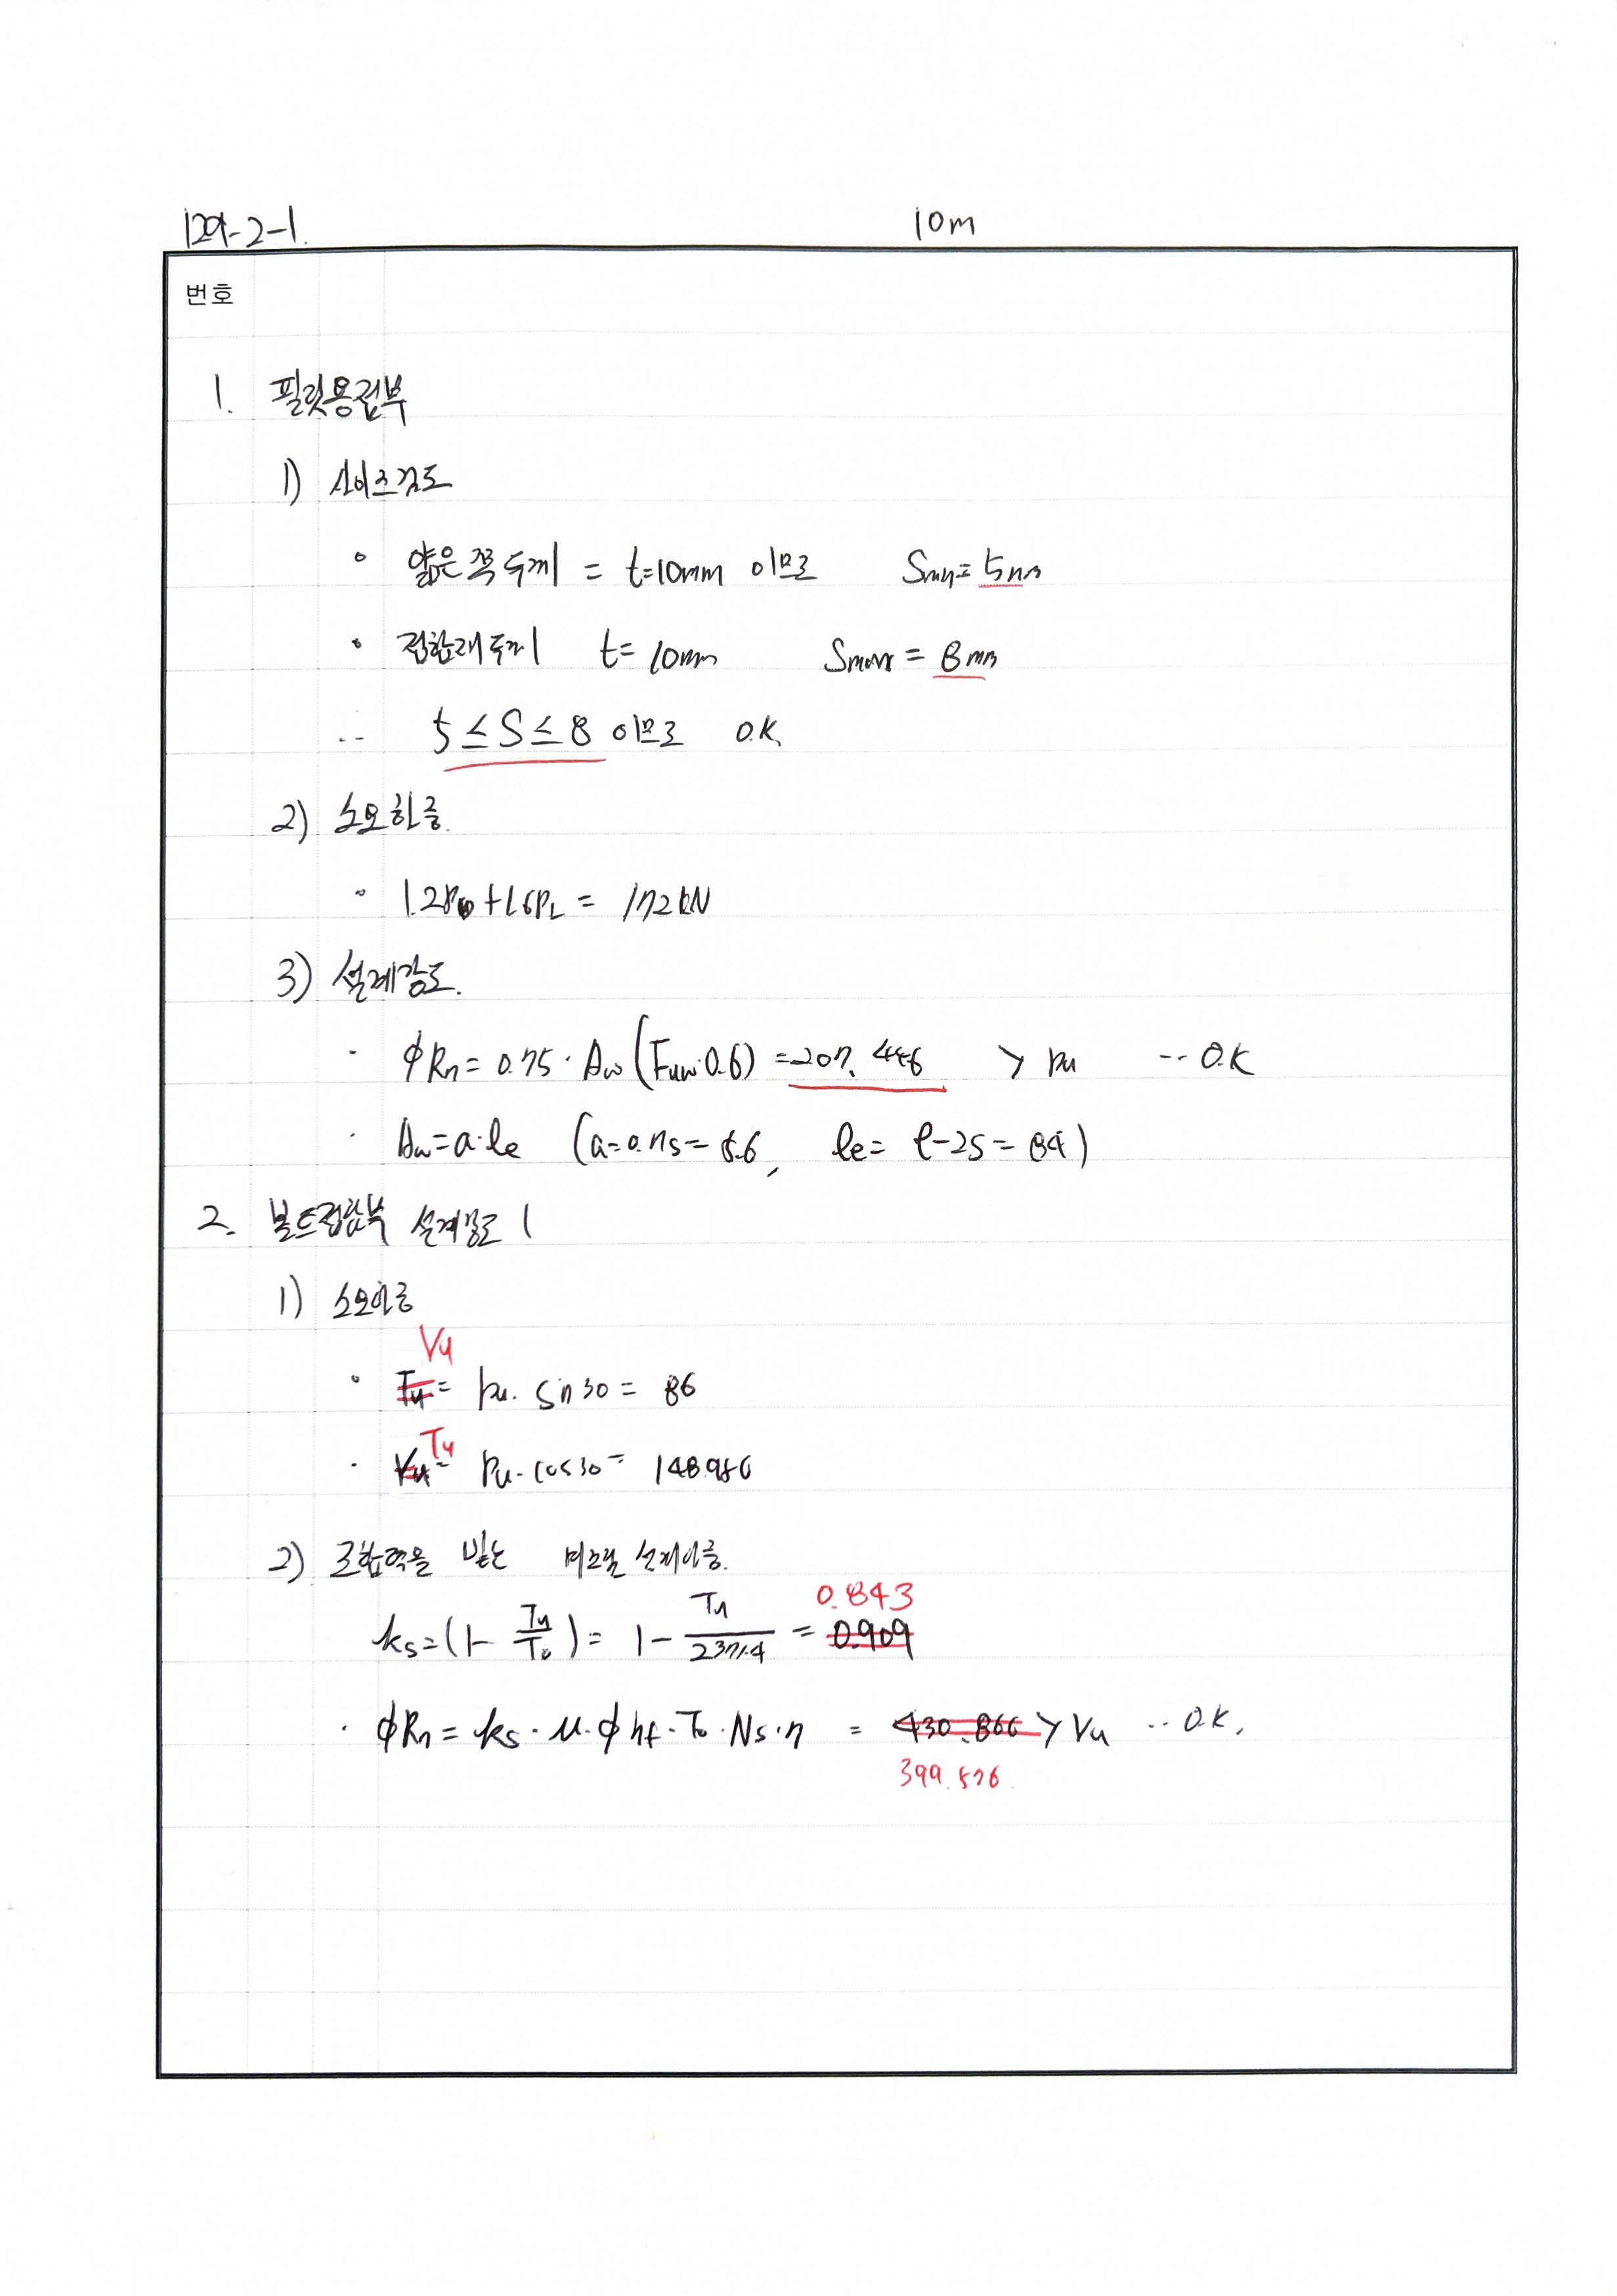 129-2-1. 10m
번호
1. 필릿용접부
1) 사이즈검토
◦ 얇은 쪽 두께 = t=10mm 이므로 Smin= 5mm
• 접합재 두께 t= 10mm Smax = 8mm
∴ 5 ≤ S ≤ 8 이므로 O.K.
2) 소요하중.
◦ 1.2PD+1.6PL = 172kN
3) 설계강도.
· ϕRn= 0.75 · Aw (Fuw·0.6) = 207.446 > Pu ‥ O.K
· Aw=a·le (a=0.7s= 5.6, le= l-2s = 84)
2. 볼트접합부 설계강도 (
1) 소요하중
Vu
◦ Tu= Pu. sin30 = 86
Tu
· Vu= Pu·cos30= 148.956
2) 조합력을 받는 미끄럼 설계하중.
0.843
ks=(1- Tu/To) = 1- Tu/237×4 = 0.909
· ϕRn = ks · μ · ϕ hf · To · Ns · n = 430.866 > Vu ‥ O.K.
399.576